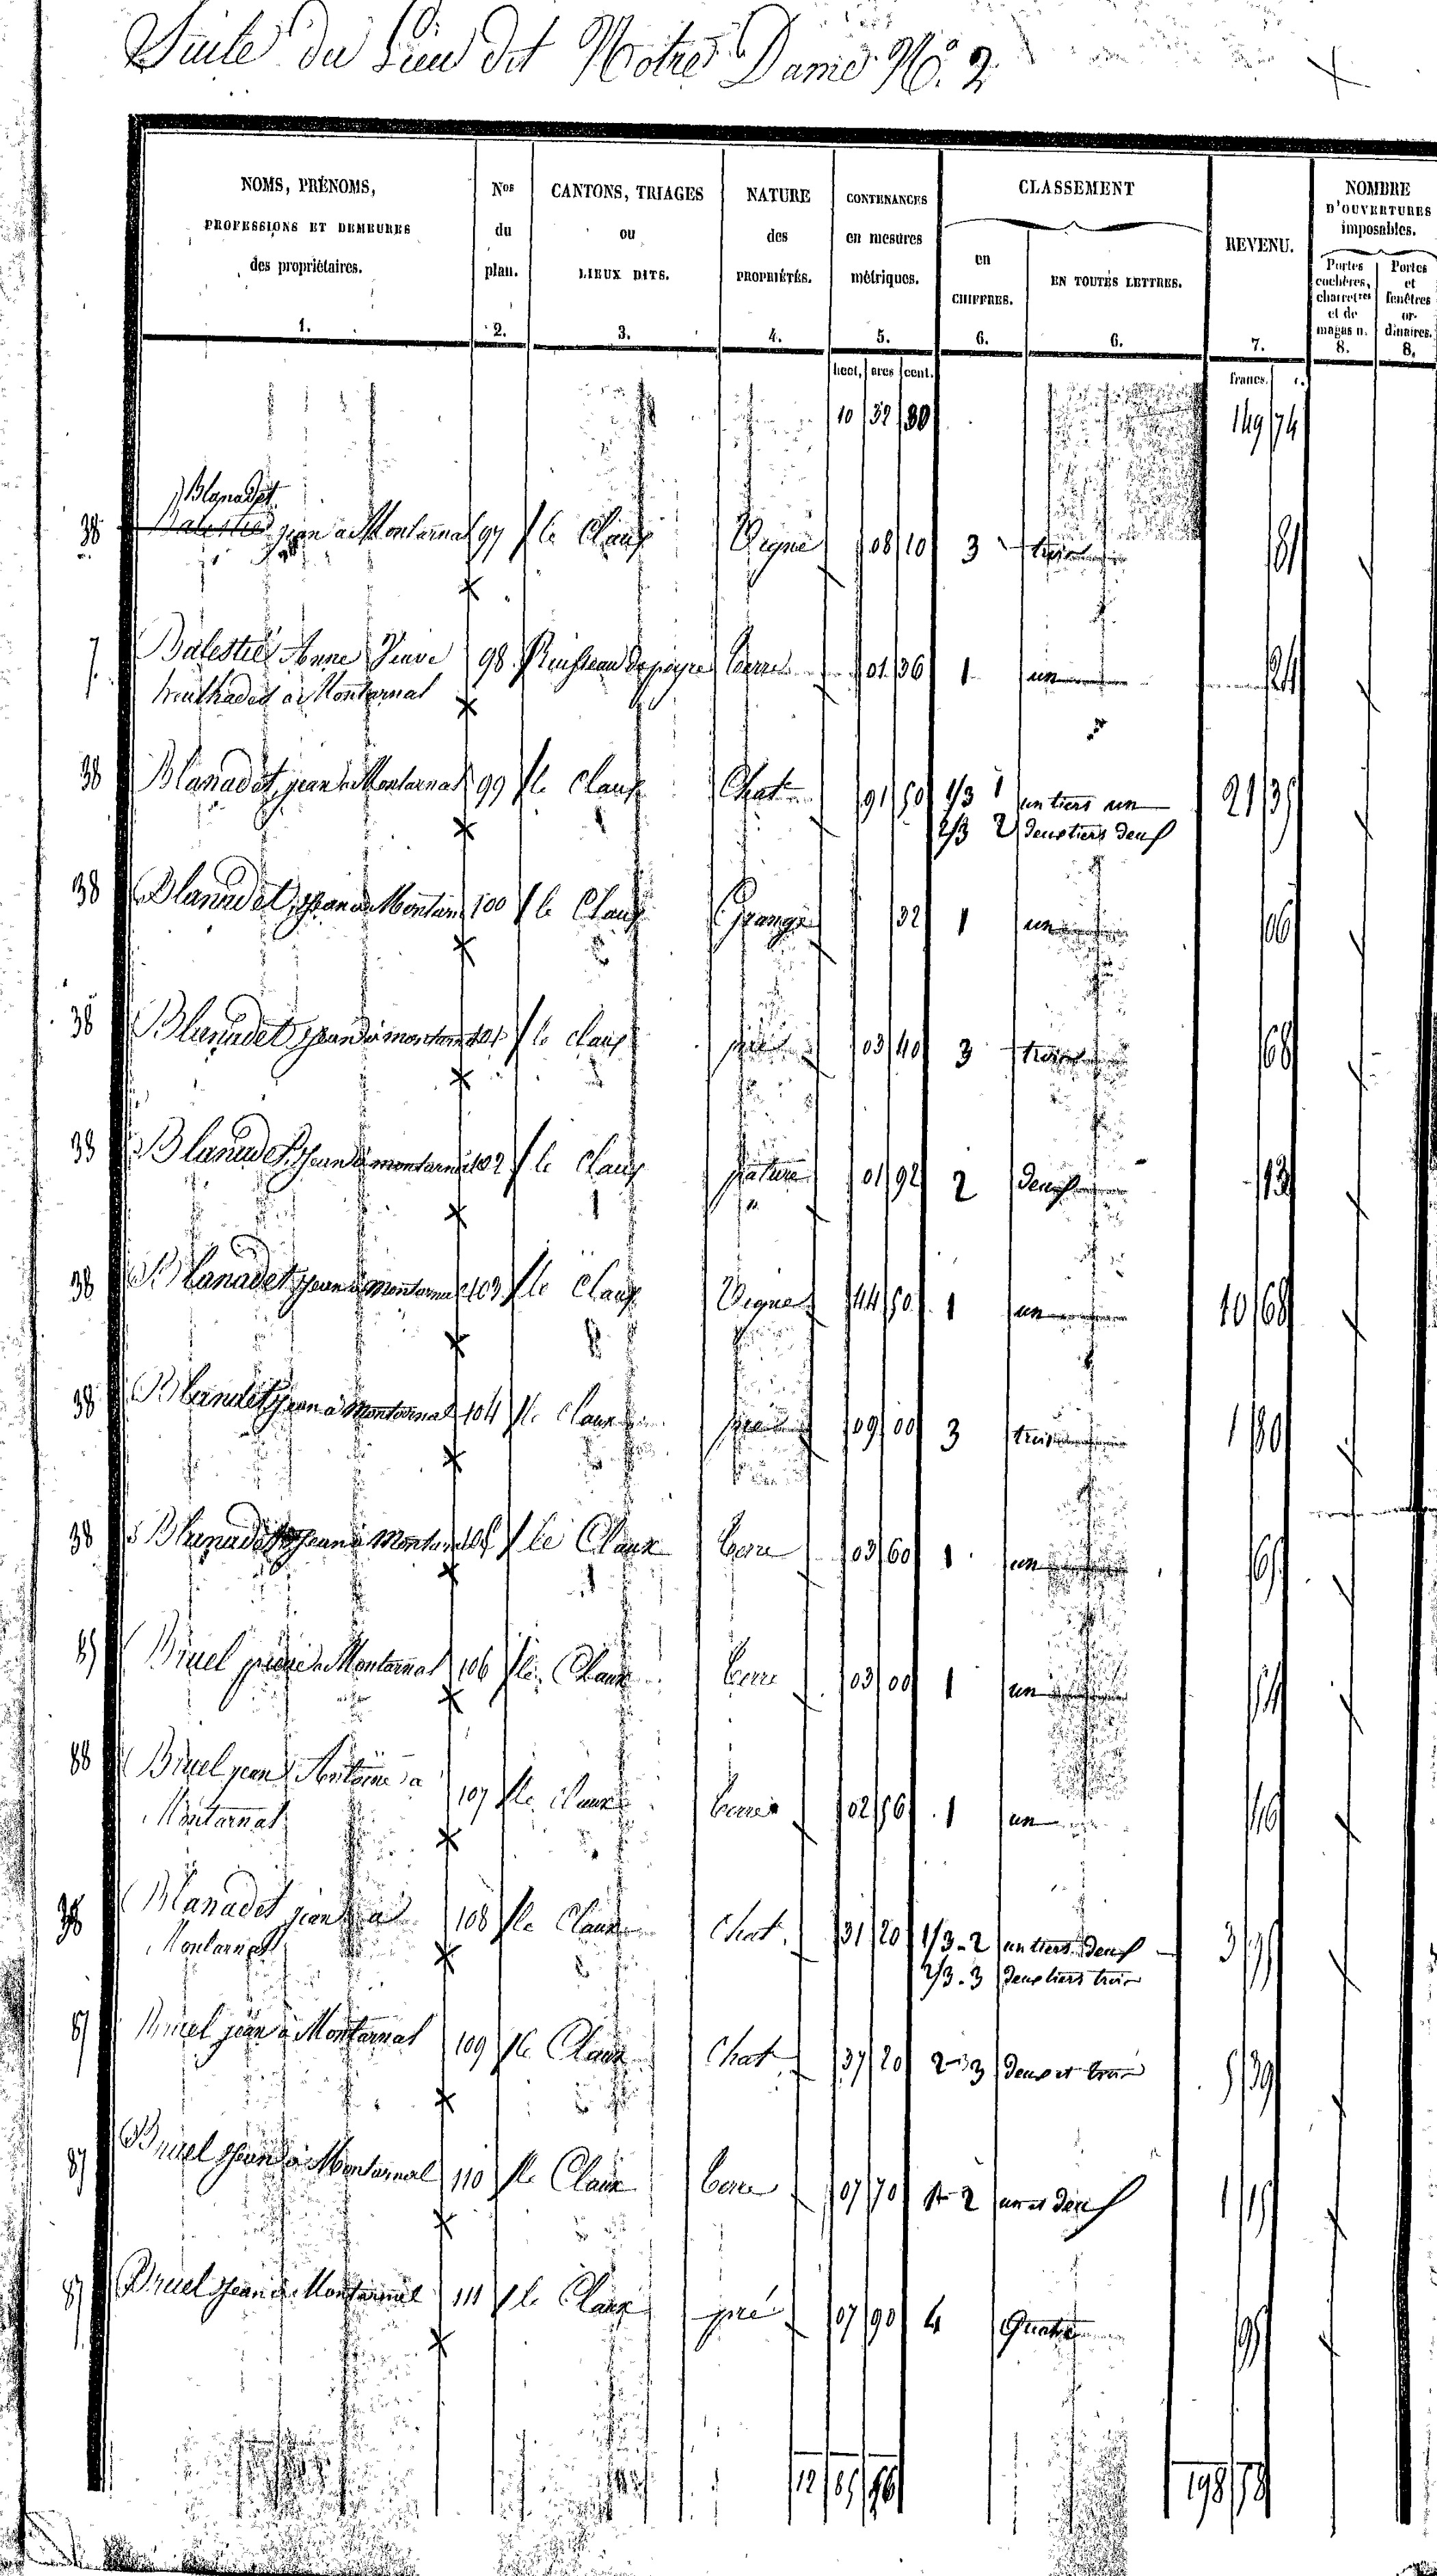 Suite du Lieu dit Notre Dame N.º 2
NOMS, PRÉNOMS, PROFESSIONS ET DEMEURES des propriétaires. 1.
Nos du plan. 2.
CANTONS, TRIAGES ou LIEUX DITS. 3.
NATURE des PROPRIÉTÉS. 4.
CONTENANCES en mesures métriques. 5.
CLASSEMENT
en CHIFFRES. 6.
EN TOUTES LETTRES. 6.
REVENU. 7.
NOMBRE D'OUVERTURES imposables.
Portes cochères, charretres et de magas n. 8.
Portes et fenêtres or-dinaires. 8.
hect. ares cent. francs. c.
10 32 80 149 74
Blanadet
38 Balestié jean à Montarnal 97 le Claux Vigne 08 10 3 trois 81
7 Balestié Anne Veuve 98 Ruisseau de Terre 01 36 1 un 24
à Montarnal
38 Blanadet jean à Montarnal 99 le Claux Chat. 91 50 1/3 1 un tiers un 21 35
2/3 2 deux tiers deux
38 Blanadet, jean à Montarnal 100 le Claux Grange 32 1 un 06
38 Blanadet jean à montarnal 101 le claux pré 03 40 3 trois 68
38 Blanadet jean à montarnal 102 le Claux pature 01 92 2 deux 13
38 Blanadet jean à Montarnal 103 le Claux Vigne 44 50 1 un 10 68
38 Blanadet jean à Montarnal 104 le Claux pré 09 00 3 trois 1 80
38 Blanadet jean à Montarnal 105 le Claux Terre 03 60 1 un 65
85 Bruel à Montarnal 106 le Claux Terre 03 00 1 un 54
88 Bruel jean Antoine à 107 le Claux Terre 02 56 1 un 46
Montarnal
38 Blanadet jean à 108 le Claux Chat. 31 20 1/3 - 2 un tiers deux 3 95
Montarnal 2/3 - 3 deux tiers trois
87 Bruel jean à Montarnal 109 le Claux Chat. 37 20 2-3 deux et trois 5 39
87 Bruel jean à Montarnal 110 le Claux Terre 07 70 1-2 un et deux 1 15
87 Bruel jean à Montarnal 111 le Claux pré 07 90 4 Quatre 95
12 85 96 198 58